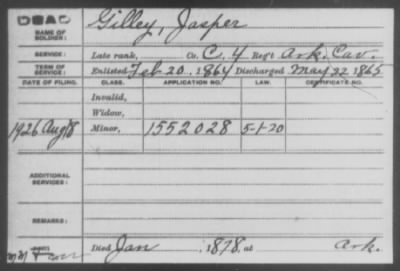 DEAD
NAME OF SOLDIER: Gilley, Jasper
SERVICE: Late rank, Co. C, 4 Reg't Ark. Cav.
TERM OF SERVICE: Enlisted Feb 20, 1864 Discharged May 22 1865
DATE OF FILING. CLASS. APPLICATION NO. LAW. CERTIFICATE NO.
Invalid,
Widow,
1926 Aug 18 Minor, 1552028 5-1-20
ADDITIONAL SERVICES:
REMARKS:
Died Jan , 1878, at Ark.